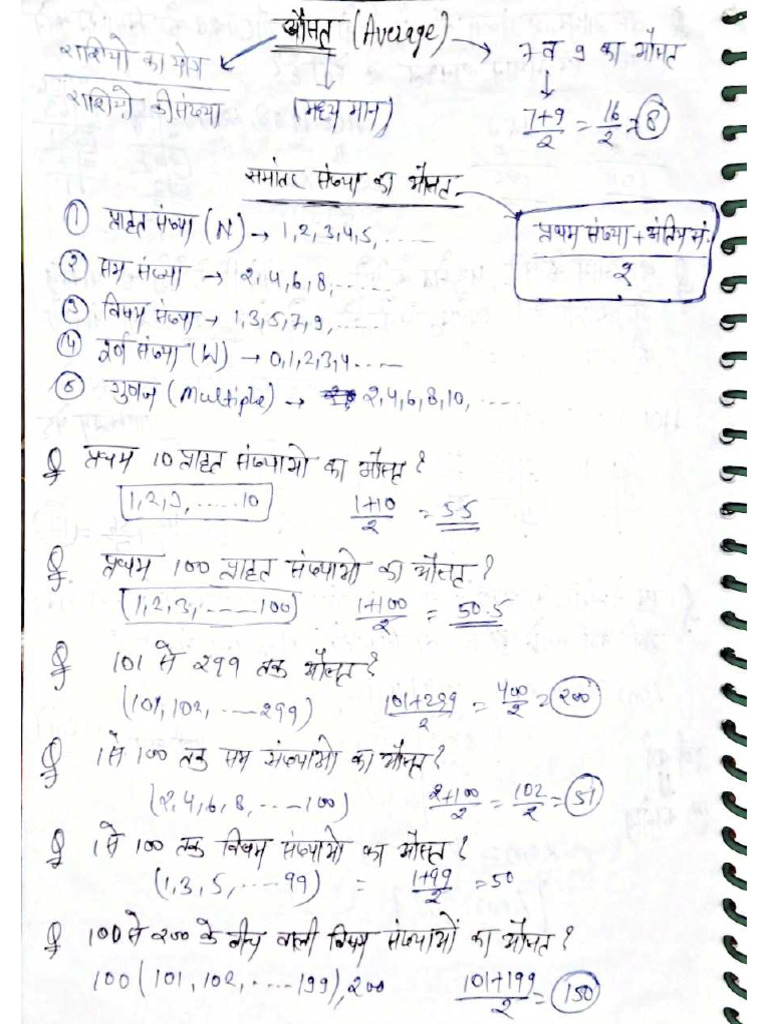 औसत (Average) → 7 व 9 का औसत
राशियों का योग
राशियों की संख्या
(मध्य मान)
7+9/2 = 16/2 = 8
समांतर संख्या का औसत
प्रथम संख्या + अंतिम सं.
2
① प्राकृत संख्या (N) → 1, 2, 3, 4, 5, ......
② सम संख्या → 2, 4, 6, 8, ......
③ विषम संख्या → 1, 3, 5, 7, 9, ......
④ पूर्ण संख्या (W) → 0, 1, 2, 3, 4 ......
⑤ गुणज (Multiple) → 2, 4, 6, 8, 10, ......
Q प्रथम 10 प्राकृत संख्याओ का औसत ?
1, 2, 3, ...... 10 1+10/2 = 5.5
Q प्रथम 100 प्राकृत संख्याओ का औसत ?
(1, 2, 3, ...... 100) 1+100/2 = 50.5
Q 101 से 299 तक औसत ?
(101, 102, ...... 299) 101+299/2 = 400/2 = 200
Q 1 से 100 तक सम संख्याओ का औसत ?
(2, 4, 6, 8, ...... 100) 2+100/2 = 102/2 = 51
Q 1 से 100 तक विषम संख्याओ का औसत ?
(1, 3, 5, ...... 99) = 1+99/2 = 50
Q 100 से 200 के बीच वाली विषम संख्याओं का औसत ?
100 (101, 102, ...... 199), 200 101+199/2 = 150